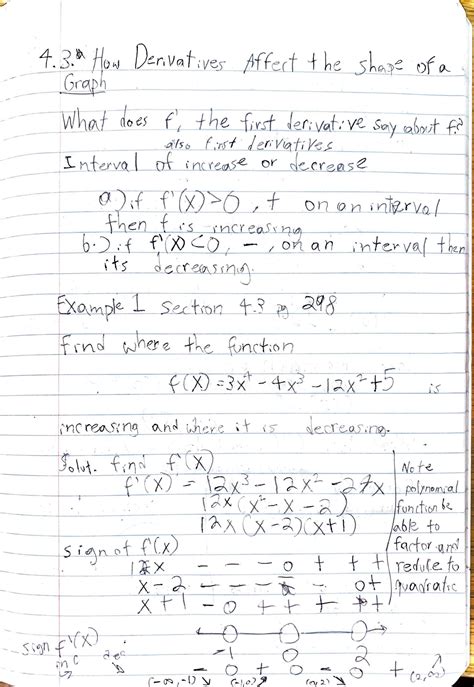 4.3. How Derivatives Affect the shape of a
Graph
What does f', the first derivative say about f?
also first derivatives
Interval of increase or decrease
a.) if f'(x)>0, + on an interval
then f is increasing
b.) if f'(x)<0, –, on an interval then
its decreasing.
Example 1 section 4.3 pg 298
Find where the function
f(x)=3x⁴-4x³-12x²+5 is
increasing and where it is decreasing.
Solut. find f'(x)
f'(x) = 12x³-12x²-24x
12x(x²-x-2)
12x(x-2)(x+1)
Note
polynomial
function be
able to
factor and
reduce to
quadratic
sign of f'(x)
12x - - - 0 + + +
x-2 - - - - - 0 +
x+1 - 0 + + + + +
-1 0 2
sign f'(x)
inc dec
- 0 + 0 - 0 +
(-∞,-1) (-1,0) (0,2) (2,∞)